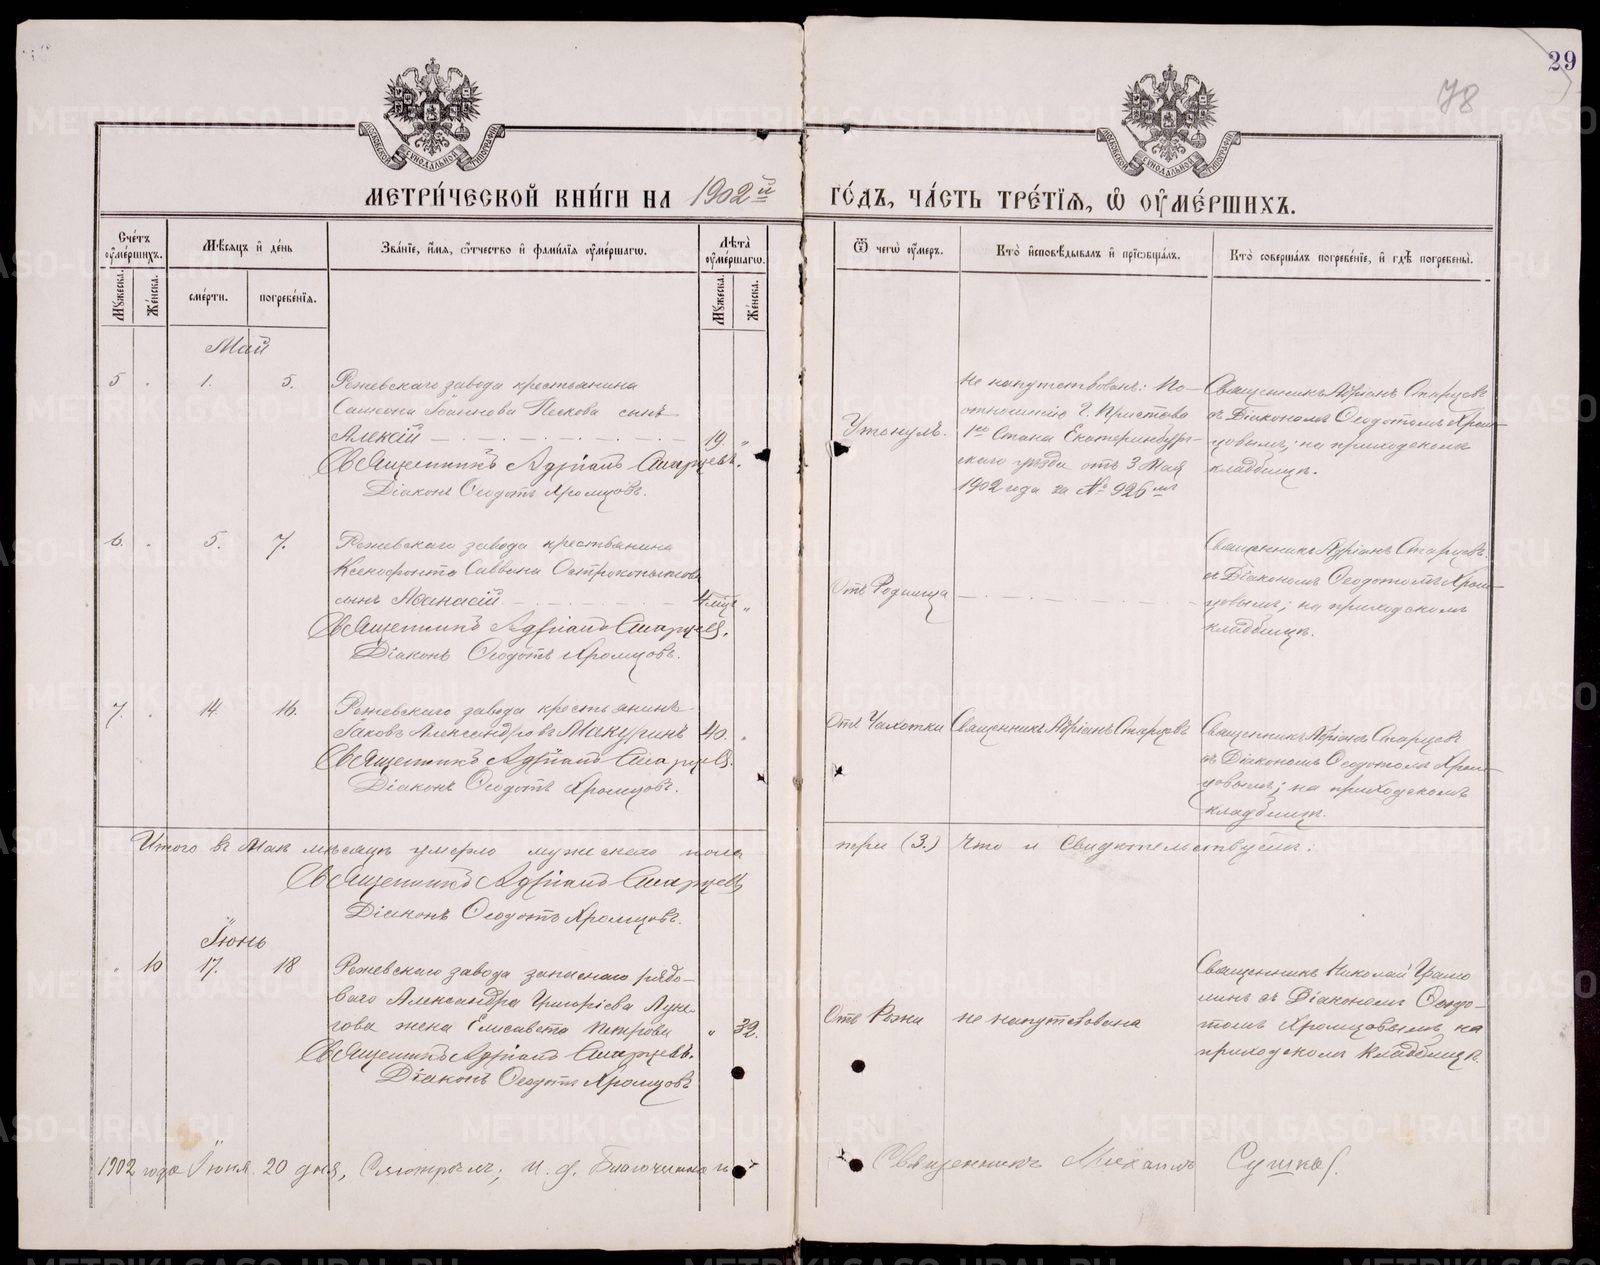 29
78
МОСКОВСКОЙ СУНОДАЛЬНОЙ ТИПОГРАФІИ
МОСКОВСКОЙ СУНОДАЛЬНОЙ ТИПОГРАФІИ
МЕТРИ́ЧЕСКОЙ КНИ́ГИ НА 1902й
ГО́ДЪ, ЧА́СТЬ ТРЕ́ТІЯ, Ѡ҆ ОУ҆МЕ́РШИХЪ.
Сче́тъ оу҆ме́ршихъ.
Мꙋ́жеска.
Же́нска.
Мѣ́сяцъ и҆ де́нь
сме́рти.
погребе́нїѧ.
Зва́нїе, и҆́мѧ, ѻ҆́тчество и҆ фами́лїѧ оу҆ме́ршагѡ.
Лѣ́та оу҆ме́ршагѡ.
Мꙋ́жеска.
Же́нска.
Ѿ чегѡ̀ оу҆́меръ.
Кто̀ и҆сповѣ́дывалъ и҆ прїѡбща́лъ.
Кто̀ соверша́лъ погребе́нїе, и҆ гдѣ̀ погребены̀.
Май
5 . 1. 5. Режевскаго завода крестьянина
Самсона Іоаннова Пескова сынъ
Алексій 19. „
Священникъ Адріанъ Старцевъ.
Діаконъ Ѳеодотъ Хромцовъ.
Утонулъ.
Не напутствованъ: По
отношенію Г. Пристава
1го Стана Екатеринбург-
скаго уѣзда отъ 3 Мая
1902 года за № 926мъ
Священникъ Адріанъ Старцевъ
съ Діакономъ Ѳеодотомъ Хром-
цовымъ; на приходскомъ
кладбищѣ.
6. . 5. 7. Режевскаго завода крестьянина
Ксенофонта Саввина
сынъ Аѳанасій „
Священникъ Адріанъ Старцевъ.
Діаконъ Ѳеодотъ Хромцовъ.
Отъ Родимца
Священникъ Адріанъ Старцевъ
съ Діакономъ Ѳеодотомъ Хром-
цовымъ; на приходскомъ
кладбищѣ.
7. . 14. 16. Режевскаго завода крестьянинъ
Іаковъ Александровъ Макуринъ 40. „
Священникъ Адріанъ Старцевъ.
Діаконъ Ѳеодотъ Хромцовъ.
Отъ Чахотки
Священникъ Адріанъ Старцевъ
Священникъ Адріанъ Старцевъ
съ Діакономъ Ѳеодотомъ Хром-
цовымъ; на приходскомъ
кладбищѣ.
Итого въ Маѣ мѣсяцѣ умерло мужескаго пола три (3.) Что и Свидѣтельствуемъ:
Священникъ Адріанъ Старцевъ
Діаконъ Ѳеодотъ Хромцовъ.
Іюнь
„ 10 17. 18 Режевскаго завода запаснаго рядо-
ваго Александра Григоріева
жена Елисавета Петрова „ 32.
Священникъ Адріанъ Старцевъ.
Діаконъ Ѳеодотъ Хромцовъ
Отъ Рожи
не напутствована
Священникъ Николай
съ Діакономъ Ѳеодо-
томъ Хромцовымъ, на
приходскомъ кладбищѣ.
1902 года Іюня 20 дня, Смотрѣлъ; И. д. Благочиннаго Священникъ Михаилъ
METRIKI.GASO-URAL.RU